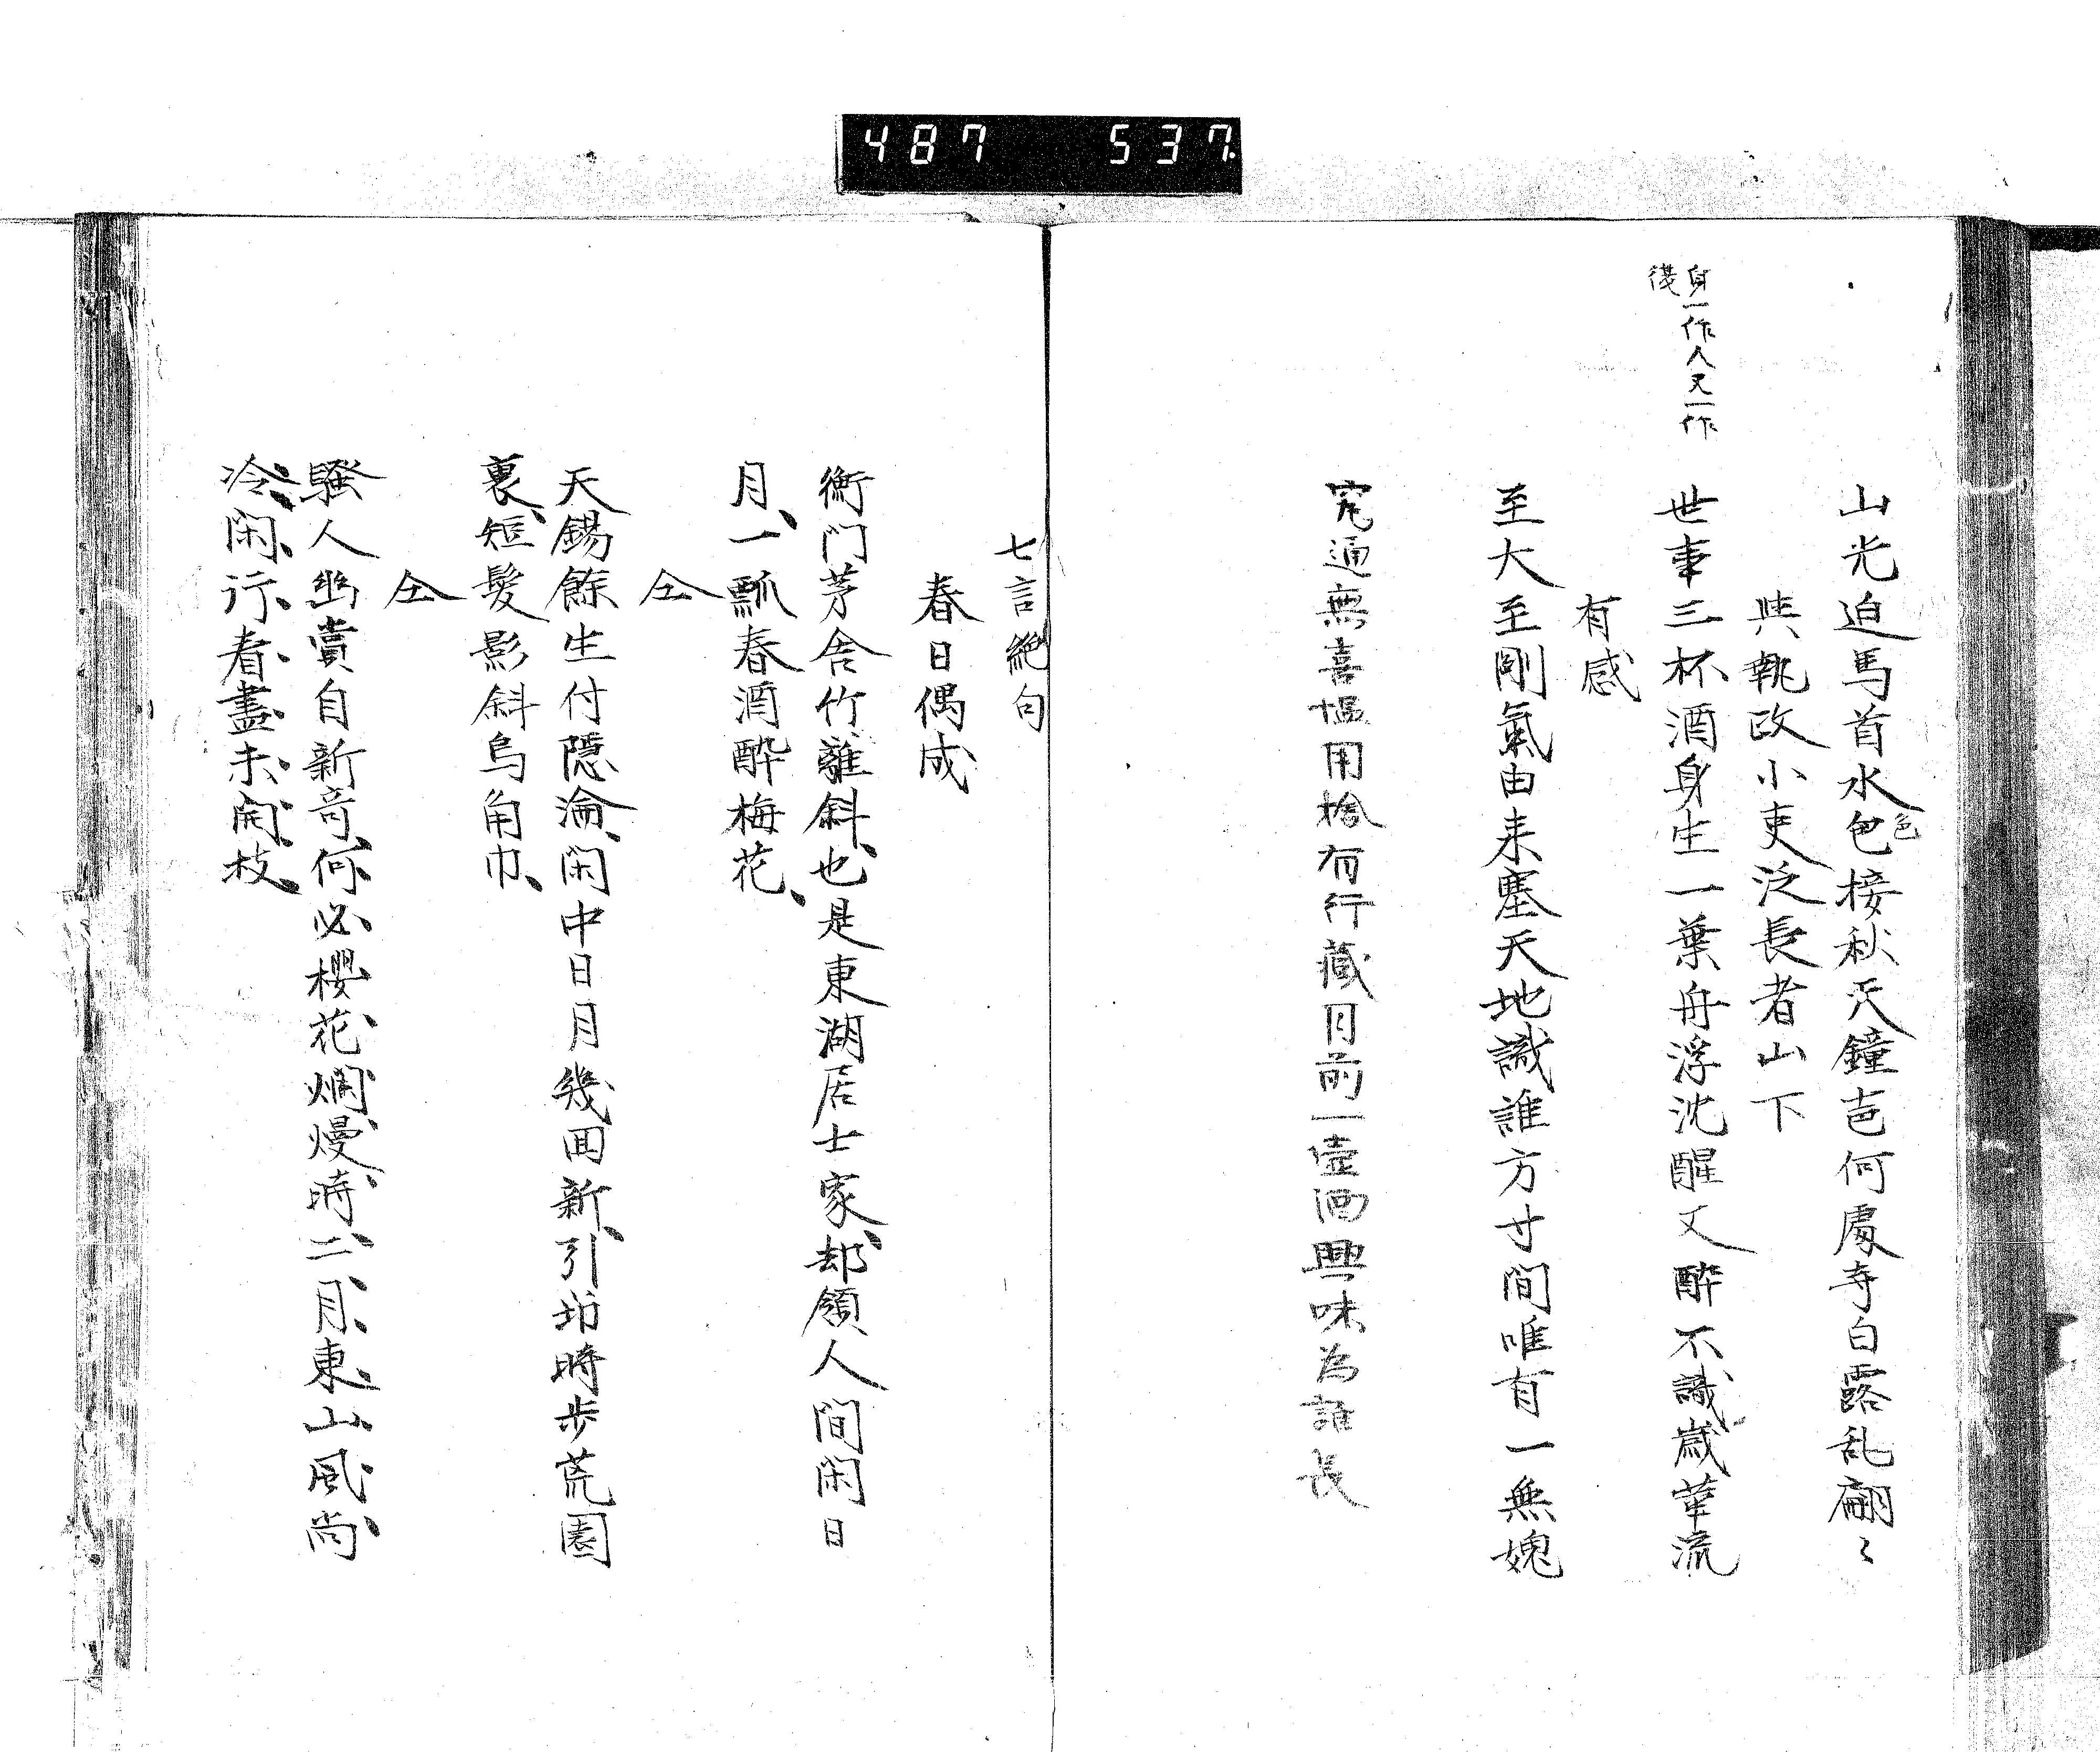 487 537.
山光迫馬首水色接秋天鐘声何處寺白露乱翩〻
色
与執政小吏泛長者山下
身一作人又一作
後
世事三杯酒身生一葉舟浮沈醒又醉不識歳華流
有感
至大至剛氣由来塞天地識誰方寸間唯有一無媿
窮通無喜慍用捨有行蔵月前一壺酒興味為誰長
七言絶句
春日偶成
衡門茅舎竹籬斜、也是東湖居士家、却領人間閑日
月、一瓢春酒酔梅花、
仝
天錫餘生付隠淪、閑中日月幾回新、引筇時歩荒園
裏、短髪影斜烏角巾、
仝
騒人幽賞自新奇、何必櫻花爛熳時、二月東山風尚
冷、閑行看盡未開枝、